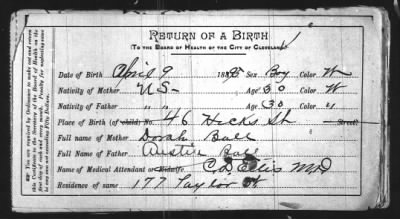 You are required by Ordinance to make out and return
this Certificate to the Secretary of the Board of Health on the
first day of each and every month. Penalty for neglecting same
not exceeding Fifty Dollars.
RETURN OF A BIRTH
(TO THE BOARD OF HEALTH OF THE CITY OF CLEVELAND)
Date of Birth April 9 188 Sex Boy Color W
Nativity of Mother U S- Age 30 Color W
Nativity of Father " " Age 30 Color "
Place of Birth of child; No. 46 Hicks St Street
Full name of Mother Dorah Ball
Full Name of Father Austin Ball
Name of Medical Attendant or Midwife. C.D. Ellis M.D
Residence of name 177 Taylor St